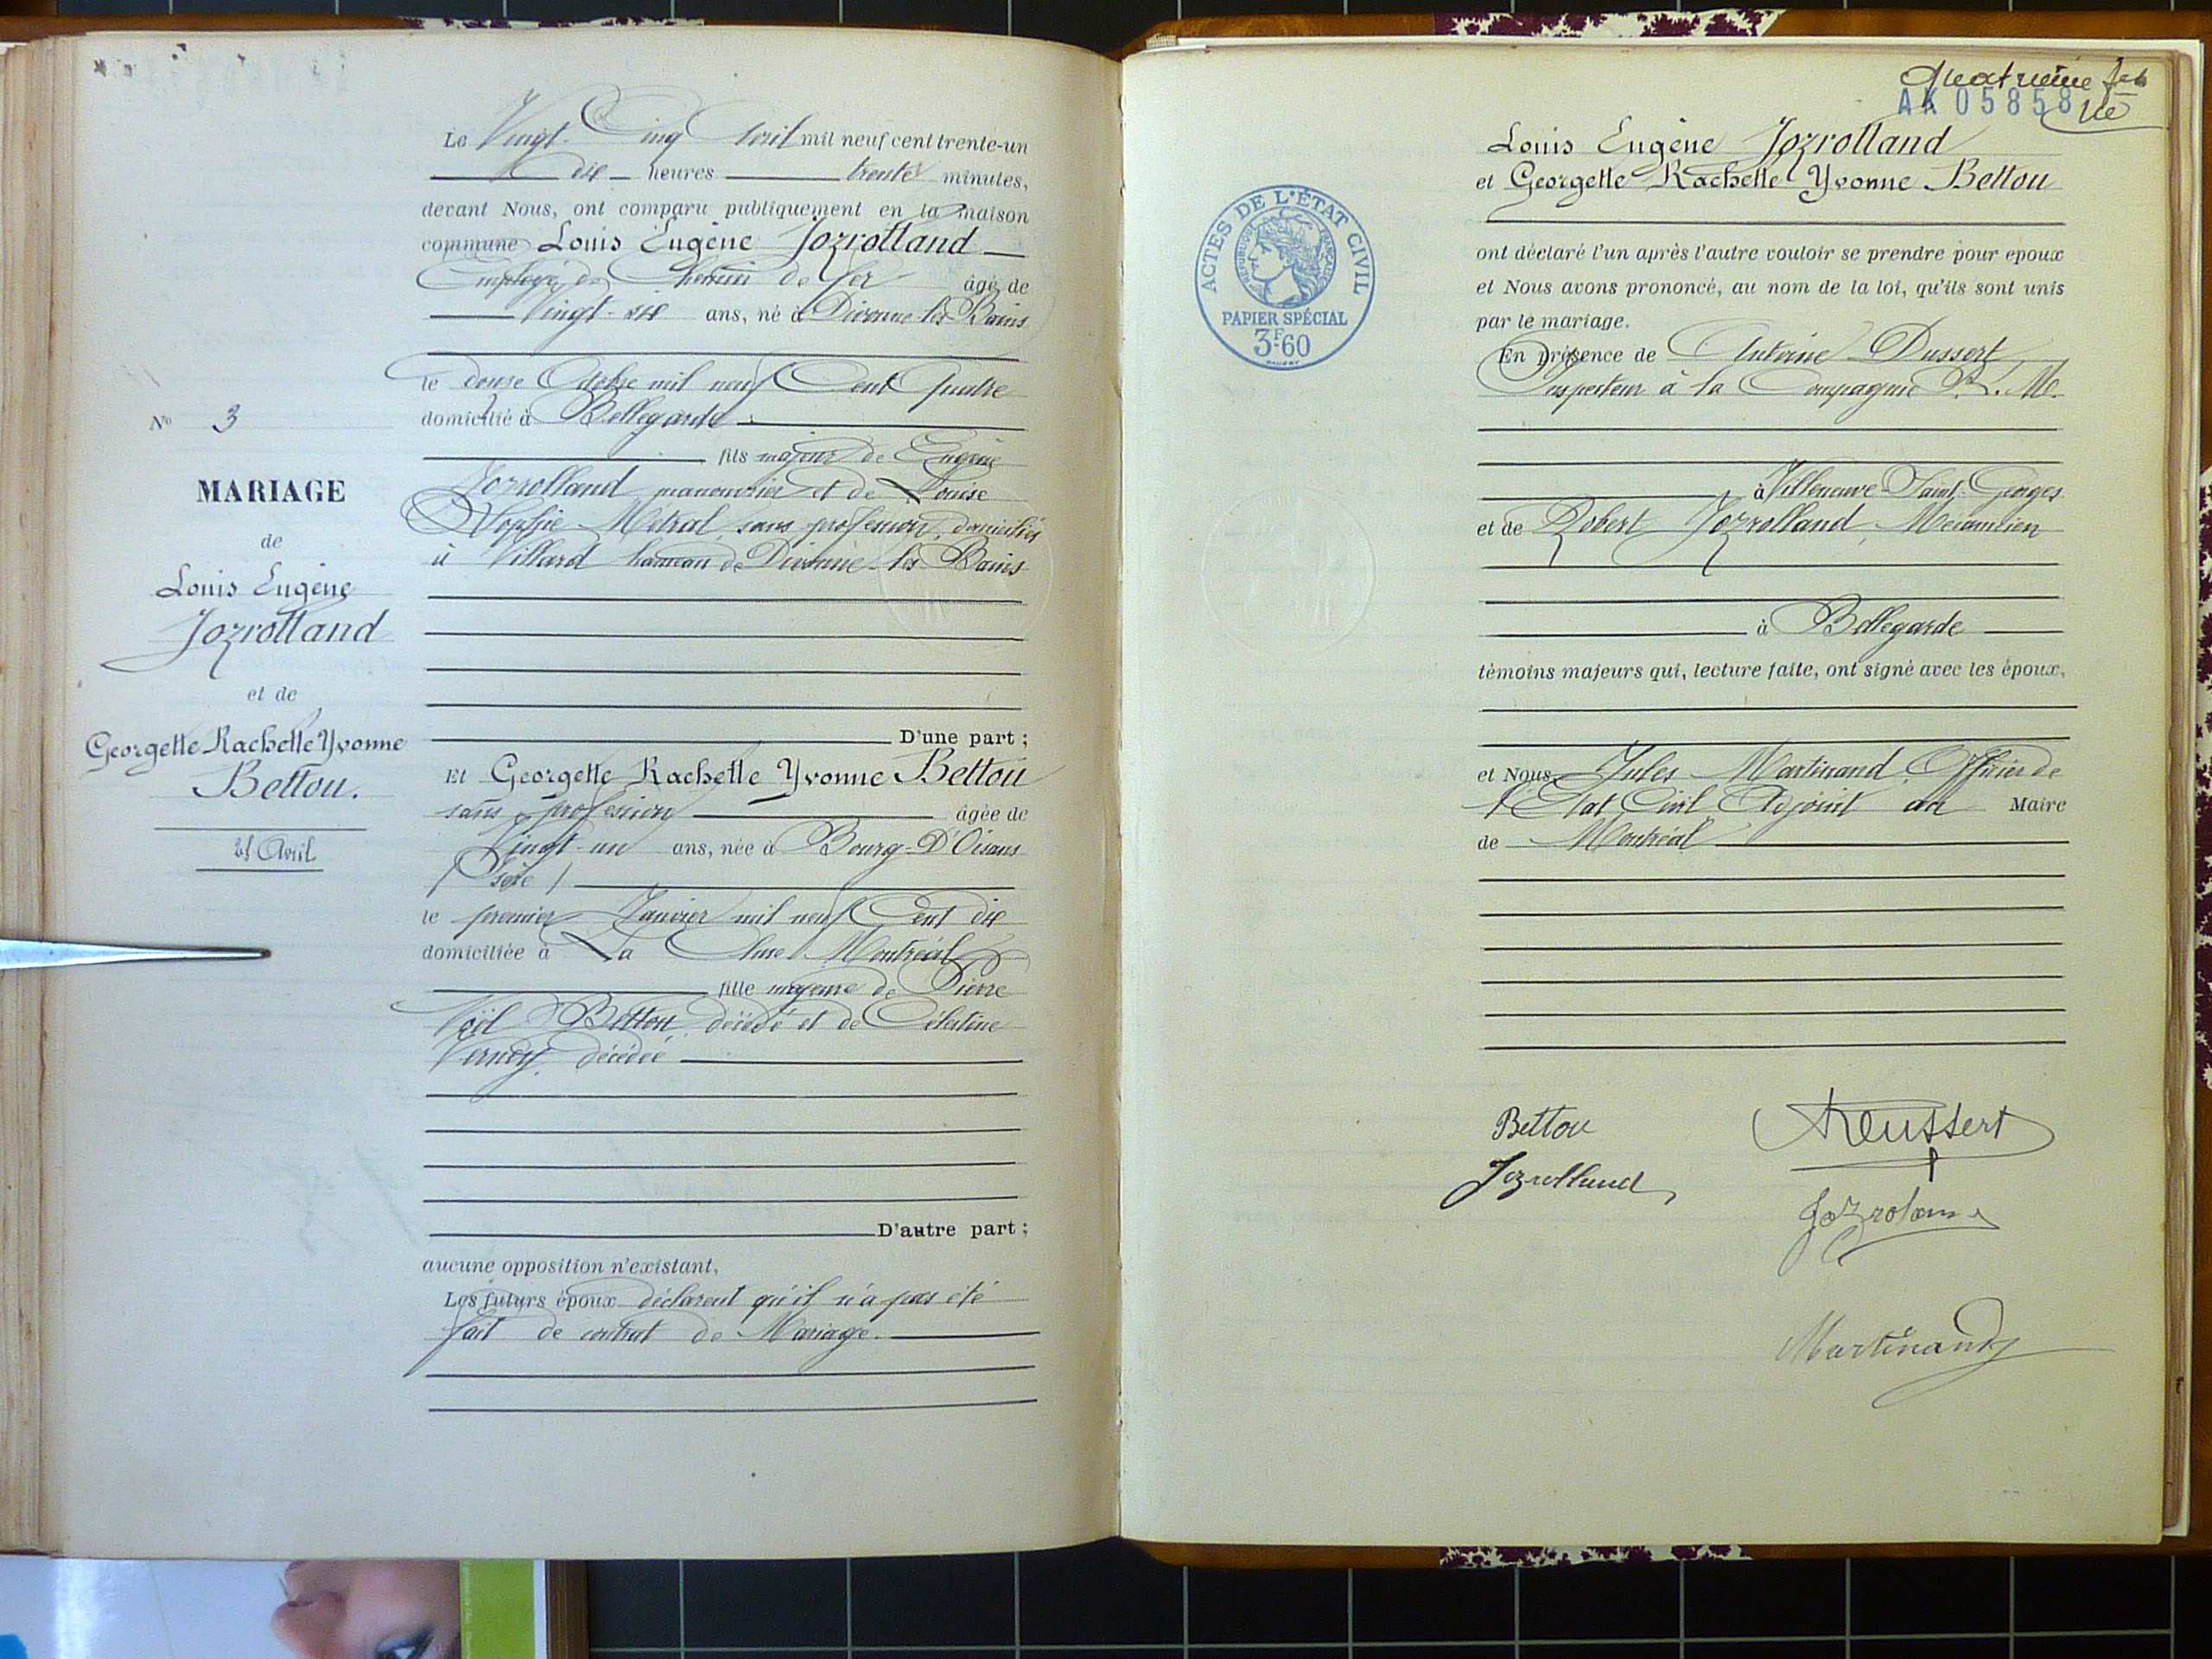 Le Vingt-Cinq Avril mil neuf cent trente-un
dix heures trente minutes,
devant Nous, ont comparu publiquement en la maison
commune Louis Eugène Jozrolland
Employé de Chemin de fer âgé de
Vingt-six ans, né à Divonne-les-Bains
le douze Octobre mil neuf Cent Quatre
domicilié à Bellegarde
fils majeur de Eugène
Jozrolland manouvrier et de Louise
Sophie Métral, sans profession, domiciliés
à Villard hameau de Divonne-les-Bains
No 3
MARIAGE
de
Louis Eugène
Jozrolland
et de
Georgette Rachelle Yvonne
Bettou.
25 Avril
D'une part ;
Et Georgette Rachelle Yvonne Bettou
sans profession âgée de
Vingt-un ans, née à Bourg-D'Oisans
(Isère)
le premier Janvier mil neuf Cent dix
domiciliée à La Cluse Montréal
fille majeure de Pierre
Noël Bettou décédé et de Célestine
décédée
D'autre part ;
aucune opposition n'existant,
Les futurs époux déclarent qu'il n'a pas été
fait de contrat de Mariage.
Quatrième
AK 05858
Louis Eugène Jozrolland
et Georgette Rachelle Yvonne Bettou
ont déclaré l'un après l'autre vouloir se prendre pour époux
et Nous avons prononcé, au nom de la loi, qu'ils sont unis
par le mariage.
En présence de Antoine Dussert
Inspecteur à la Compagnie P.L.M.
à Villeneuve-Saint-Georges
et de Robert Jozrolland, Mécanicien
à Bellegarde
témoins majeurs qui, lecture faite, ont signé avec les époux,
et Nous, Jules Martinand, Officier de
l'Etat Civil Adjoint au Maire
de Montréal
ACTES DE L'ÉTAT CIVIL
RÉPUBLIQUE FRANÇAISE
PAPIER SPÉCIAL
3F.60
Bettou
Jozrolland
Martinand